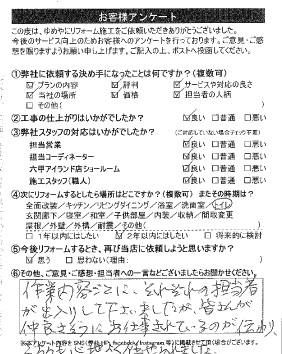 お客様アンケート
この度は、ゆめやにリフォーム施工をご依頼いただきありがとうございました。
今後のサービス向上のためお客様へのアンケートを行っております。ご意見・ご感
想を賜りますようお願い申し上げます。ご記入の上、ポストへ投函してください。
①弊社に依頼する決め手になったことは何ですか?(複数可)
☑プランの内容 ☑評判 ☑サービスや対応の良さ
☑当社の場所 ☑価格 ☑担当者の人柄
□その他( )
②工事の仕上がりはいかがでしたか? ☑良い □普通 □悪い
③弊社スタッフの対応はいかがでしたか?
担当営業 ☑良い □普通 □悪い
担当コーディネーター ☑良い □普通 □悪い
六甲アイランド店ショールーム ☑良い □普通 □悪い
施工スタッフ(職人) ☑良い □普通 □悪い
④次にリフォームするとしたら場所はどこですか?(複数可) またその時期は?
全面改装/キッチン/リビングダイニング/浴室/洗面室/トイレ
玄関廊下/寝室/和室/子供部屋/内装/収納/間取変更
屋根/外壁/外構/耐震/その他( )
□1年以内にはしたい ☑2年以内にはしたい □将来的に検討
⑤今後リフォームするとき、再び当店に依頼しようと思いますか?
☑思う □思わない(理由: )
⑥その他、ご意見・ご感想・担当者への一言などございましたらお聞かせください。
作業内容ごとに、それぞれの担当者
が出入りして下さいましたが、皆さんが
仲良さそうにお仕事されているのが伝わり、